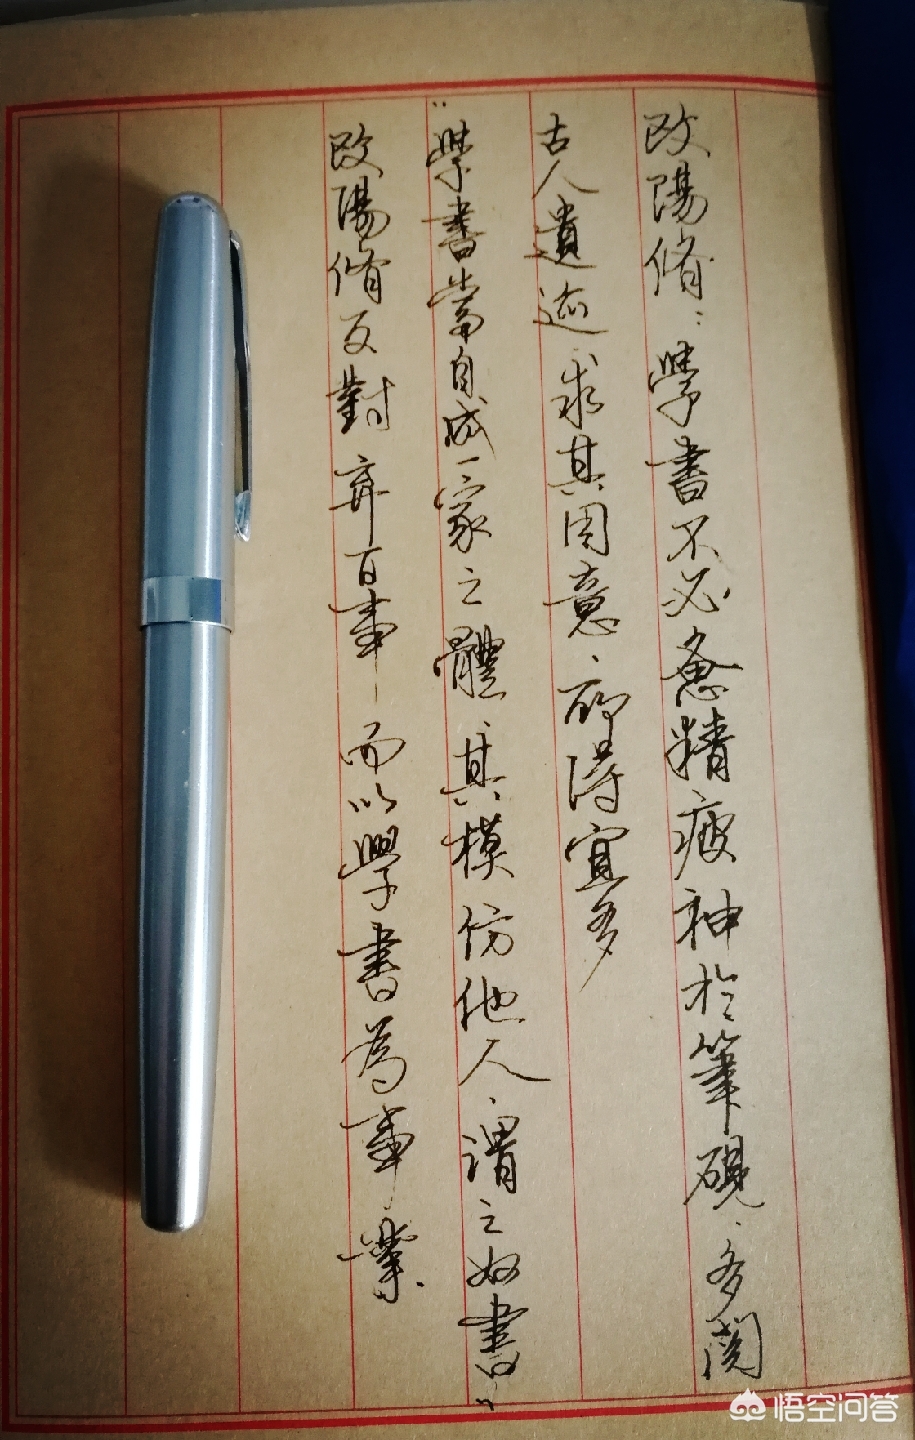 欧陽脩：學書不必惫精疲神於筆硯、多閱
古人遺迹、求其用意、所得宜多
“學書當自成一家之體、其模仿他人、謂之奴書”
欧陽脩反對弃百事–而以學書為事業.
悟空问答